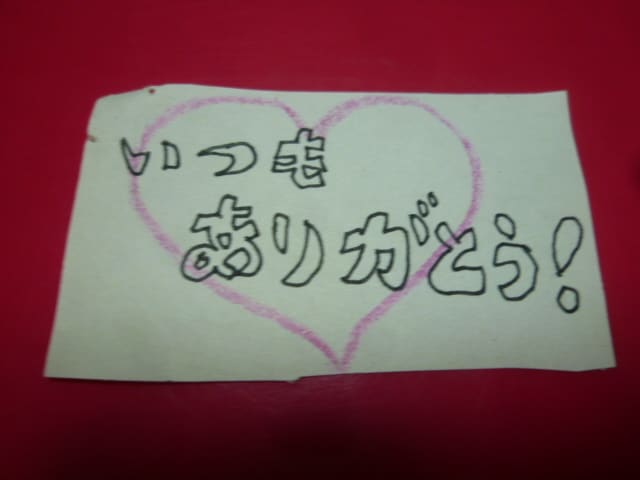 いつも
ありがとう!